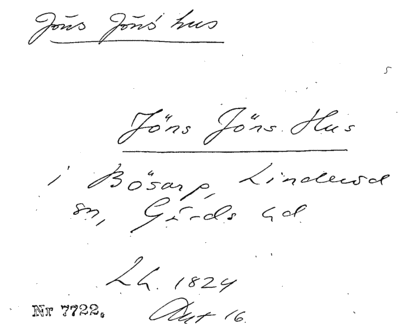 Jöns Jöns hus
Jöns Jöns Hus
i Bösarp, Linderöd
sn, Gärds hd
Lh. 1824
Akt 16.
Nr 7722.